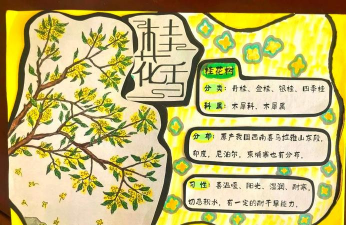 桂花香
桂花树
分类：丹桂、金桂、银桂、四季桂
科属：木犀科、木犀属
分布：原产我国西南喜马拉雅山东段，
印度，尼泊尔，柬埔寨也有分布。
习性：喜温暖、阳光、湿润、耐寒，
切忌积水，有一定的耐干旱能力。